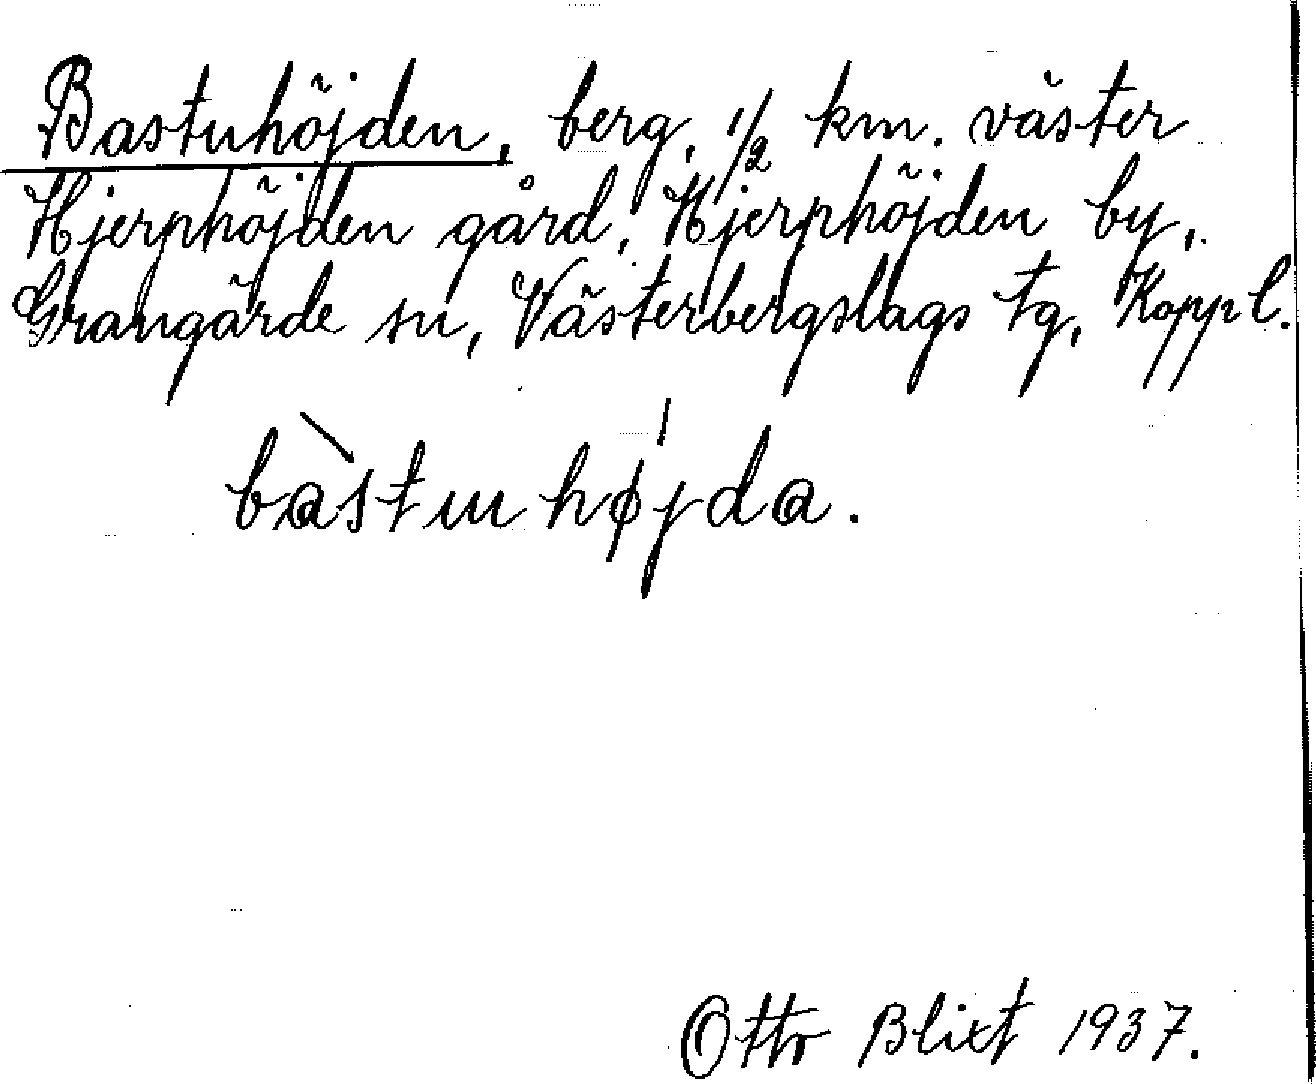 Bastuhöjden, berg, 1/2 km. väster
Hjerphöjden gård, Hjerphöjden by,
Grangärde sn, Västerbergslags tg, Kopp l.
bàstuhø̍jda.
Otto Blixt 1937.